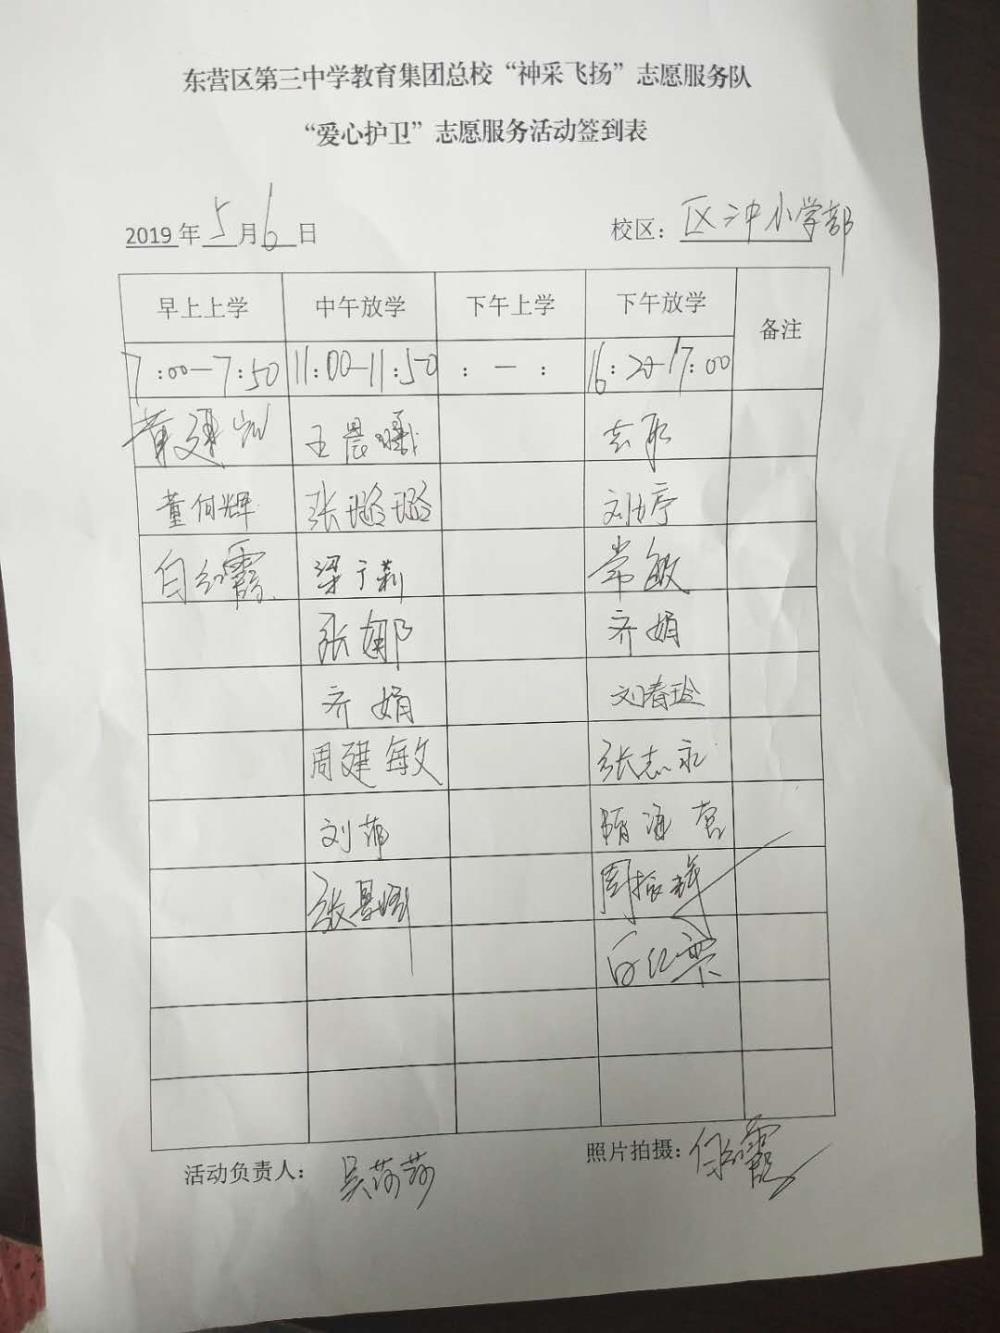 东营区第三中学教育集团总校“神采飞扬”志愿服务队
“爱心护卫”志愿服务活动签到表
2019年5月6日 校区：区 小学部
早上上学 中午放学 下午上学 下午放学 备注
7:00—7:50 11:00—11:50 : — : 16:20—17:00
黄建 王晨曦
董何辉 张璐璐 刘婷
白红霞 梁广莉 常敏
张娜 齐娟
齐娟 刘春玲
周建敏 张志永
刘萍 隋海营
张 周振
白红霞
活动负责人：吴莎莎 照片拍摄：白红霞